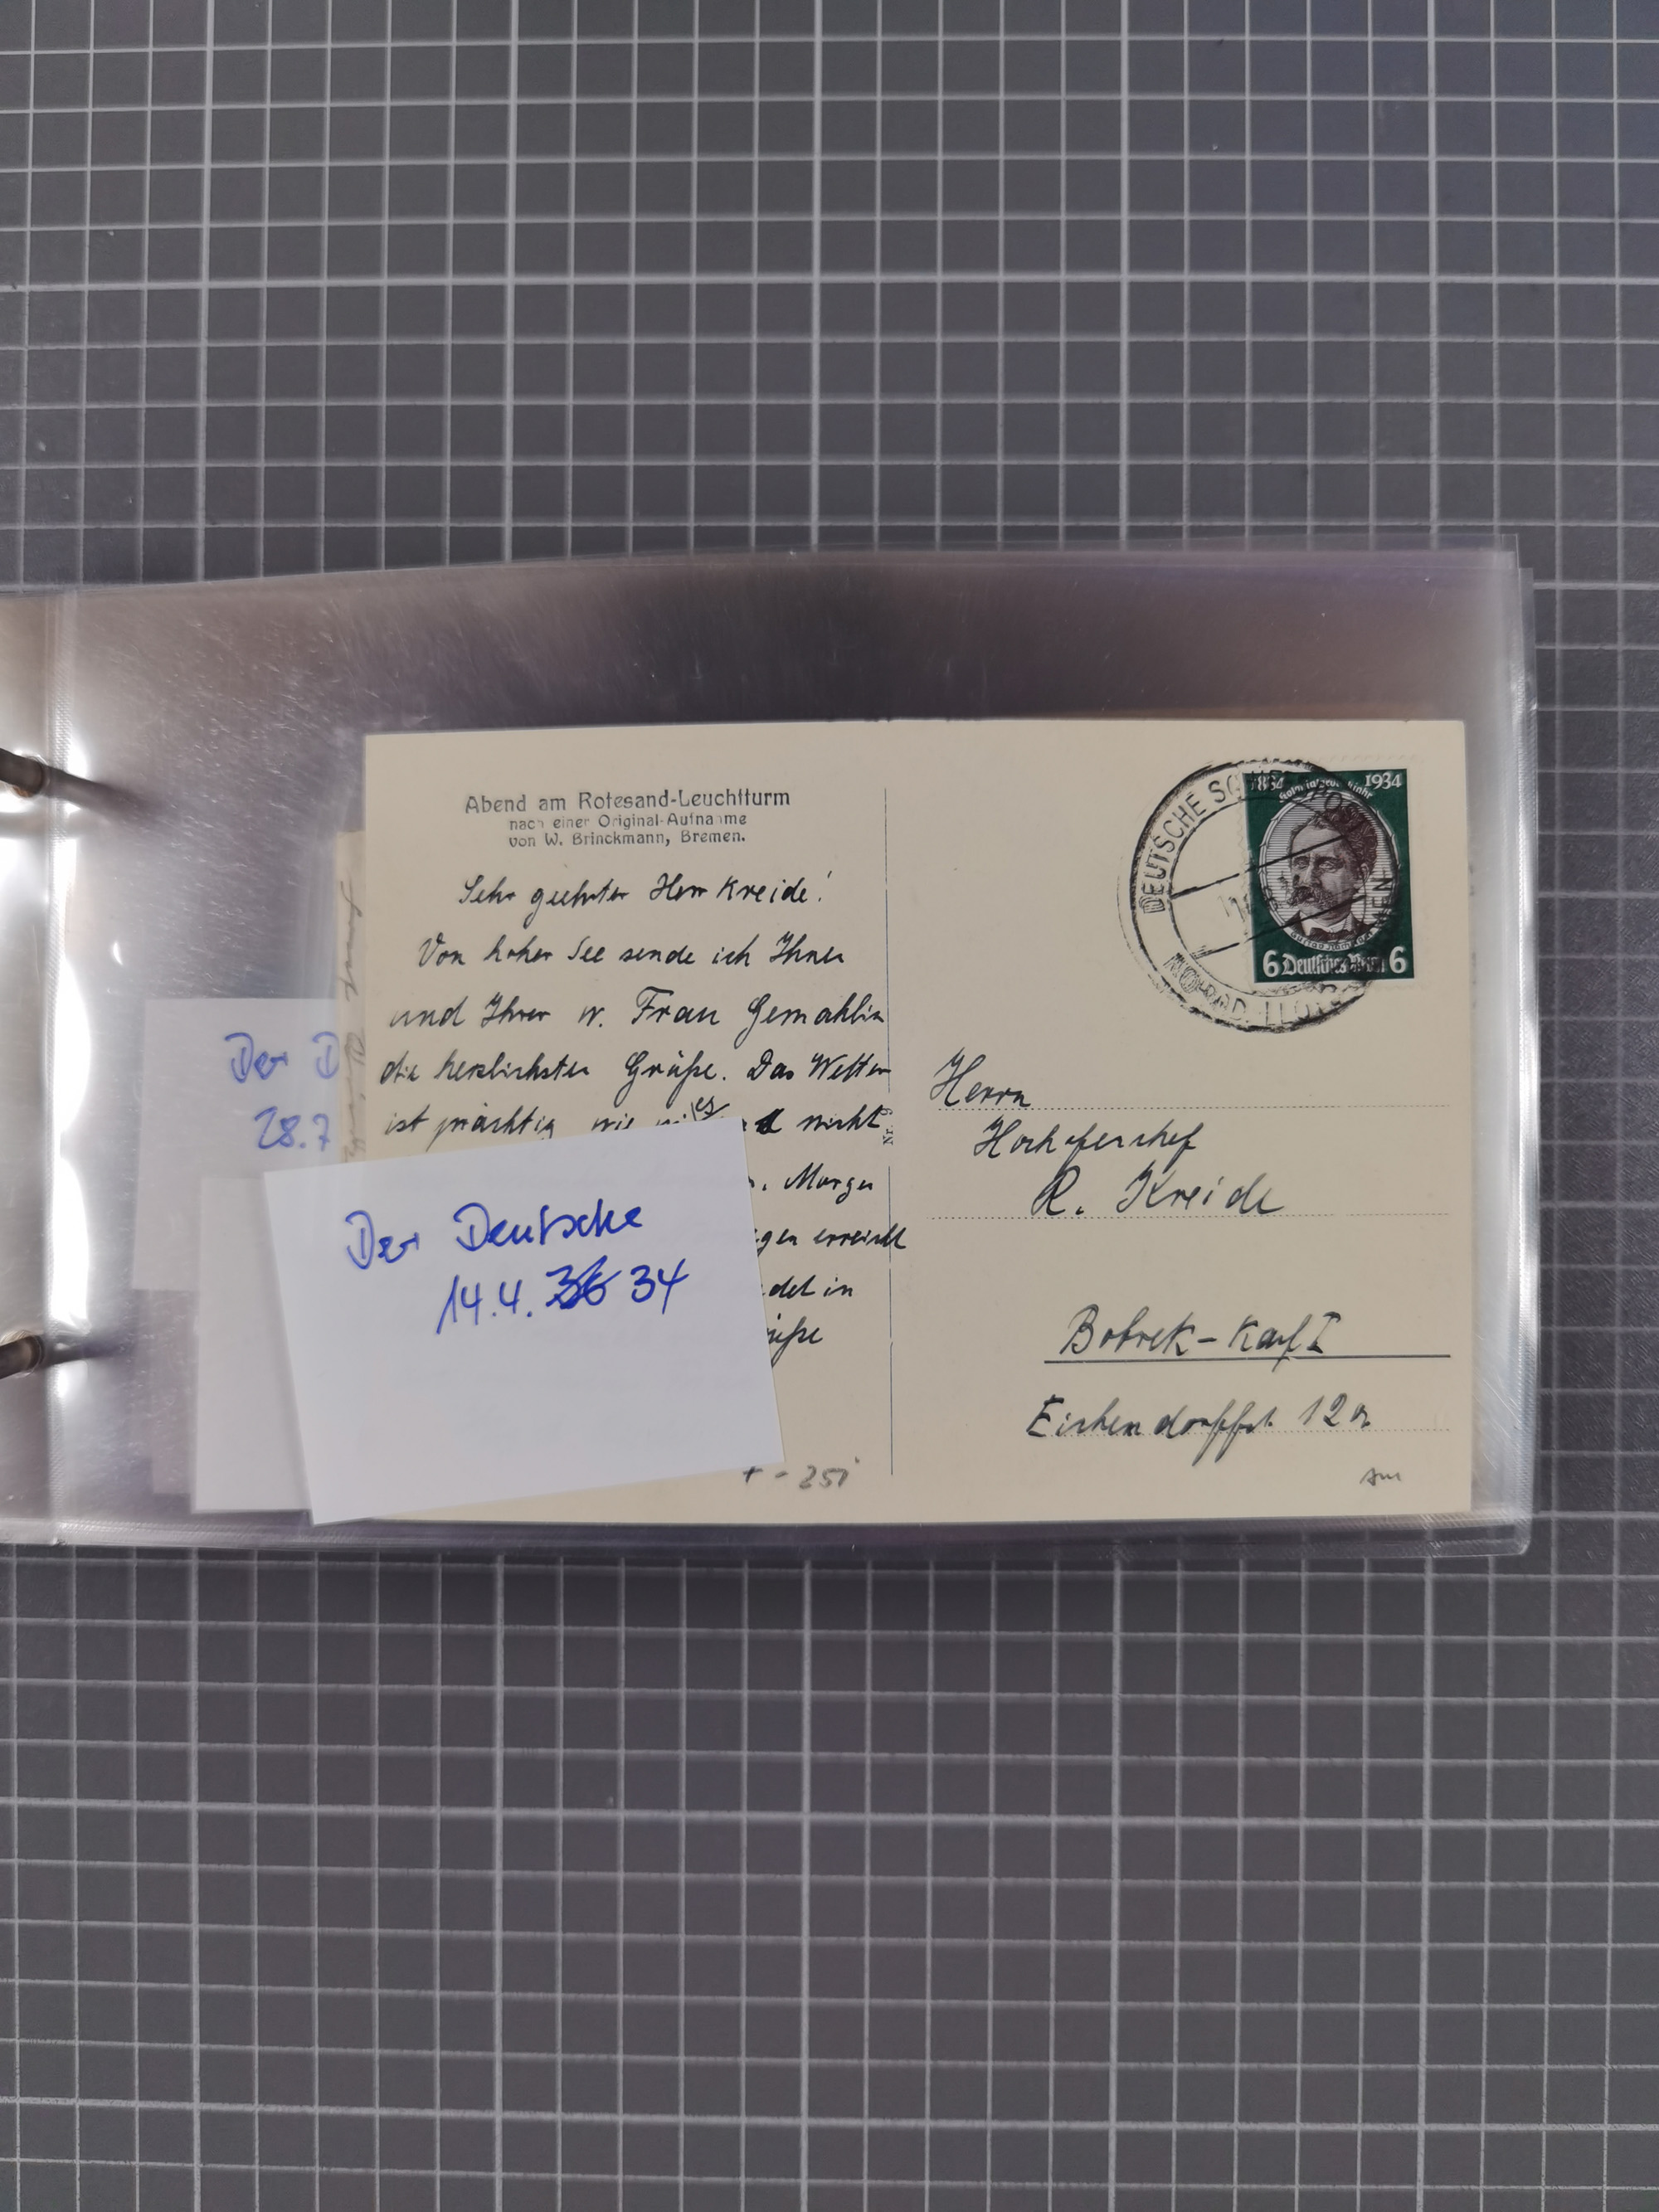 Abend am Rotesand-Leuchtturm
nach einer Original-Aufnahme
von W. Brinckmann, Bremen.
Sehr geehrter Herr Kreide!
Von hoher See sende ich Ihnen
und Ihrer w. Frau Gemahlin
die herzlichsten Grüße. Das Wetter
ist prächtig wie es nicht
Morgen
erreicht
in
Der D
28.7
Der Deutsche
14.4. 34
DEUTSCHE
NORDD. LLOYD
1834 1934
6 Deutsches Reich 6
Herrn
Hochofenchef
R. Kreide
Bobrek-Karf I
Eichendorffst. 12a
Nr. 9